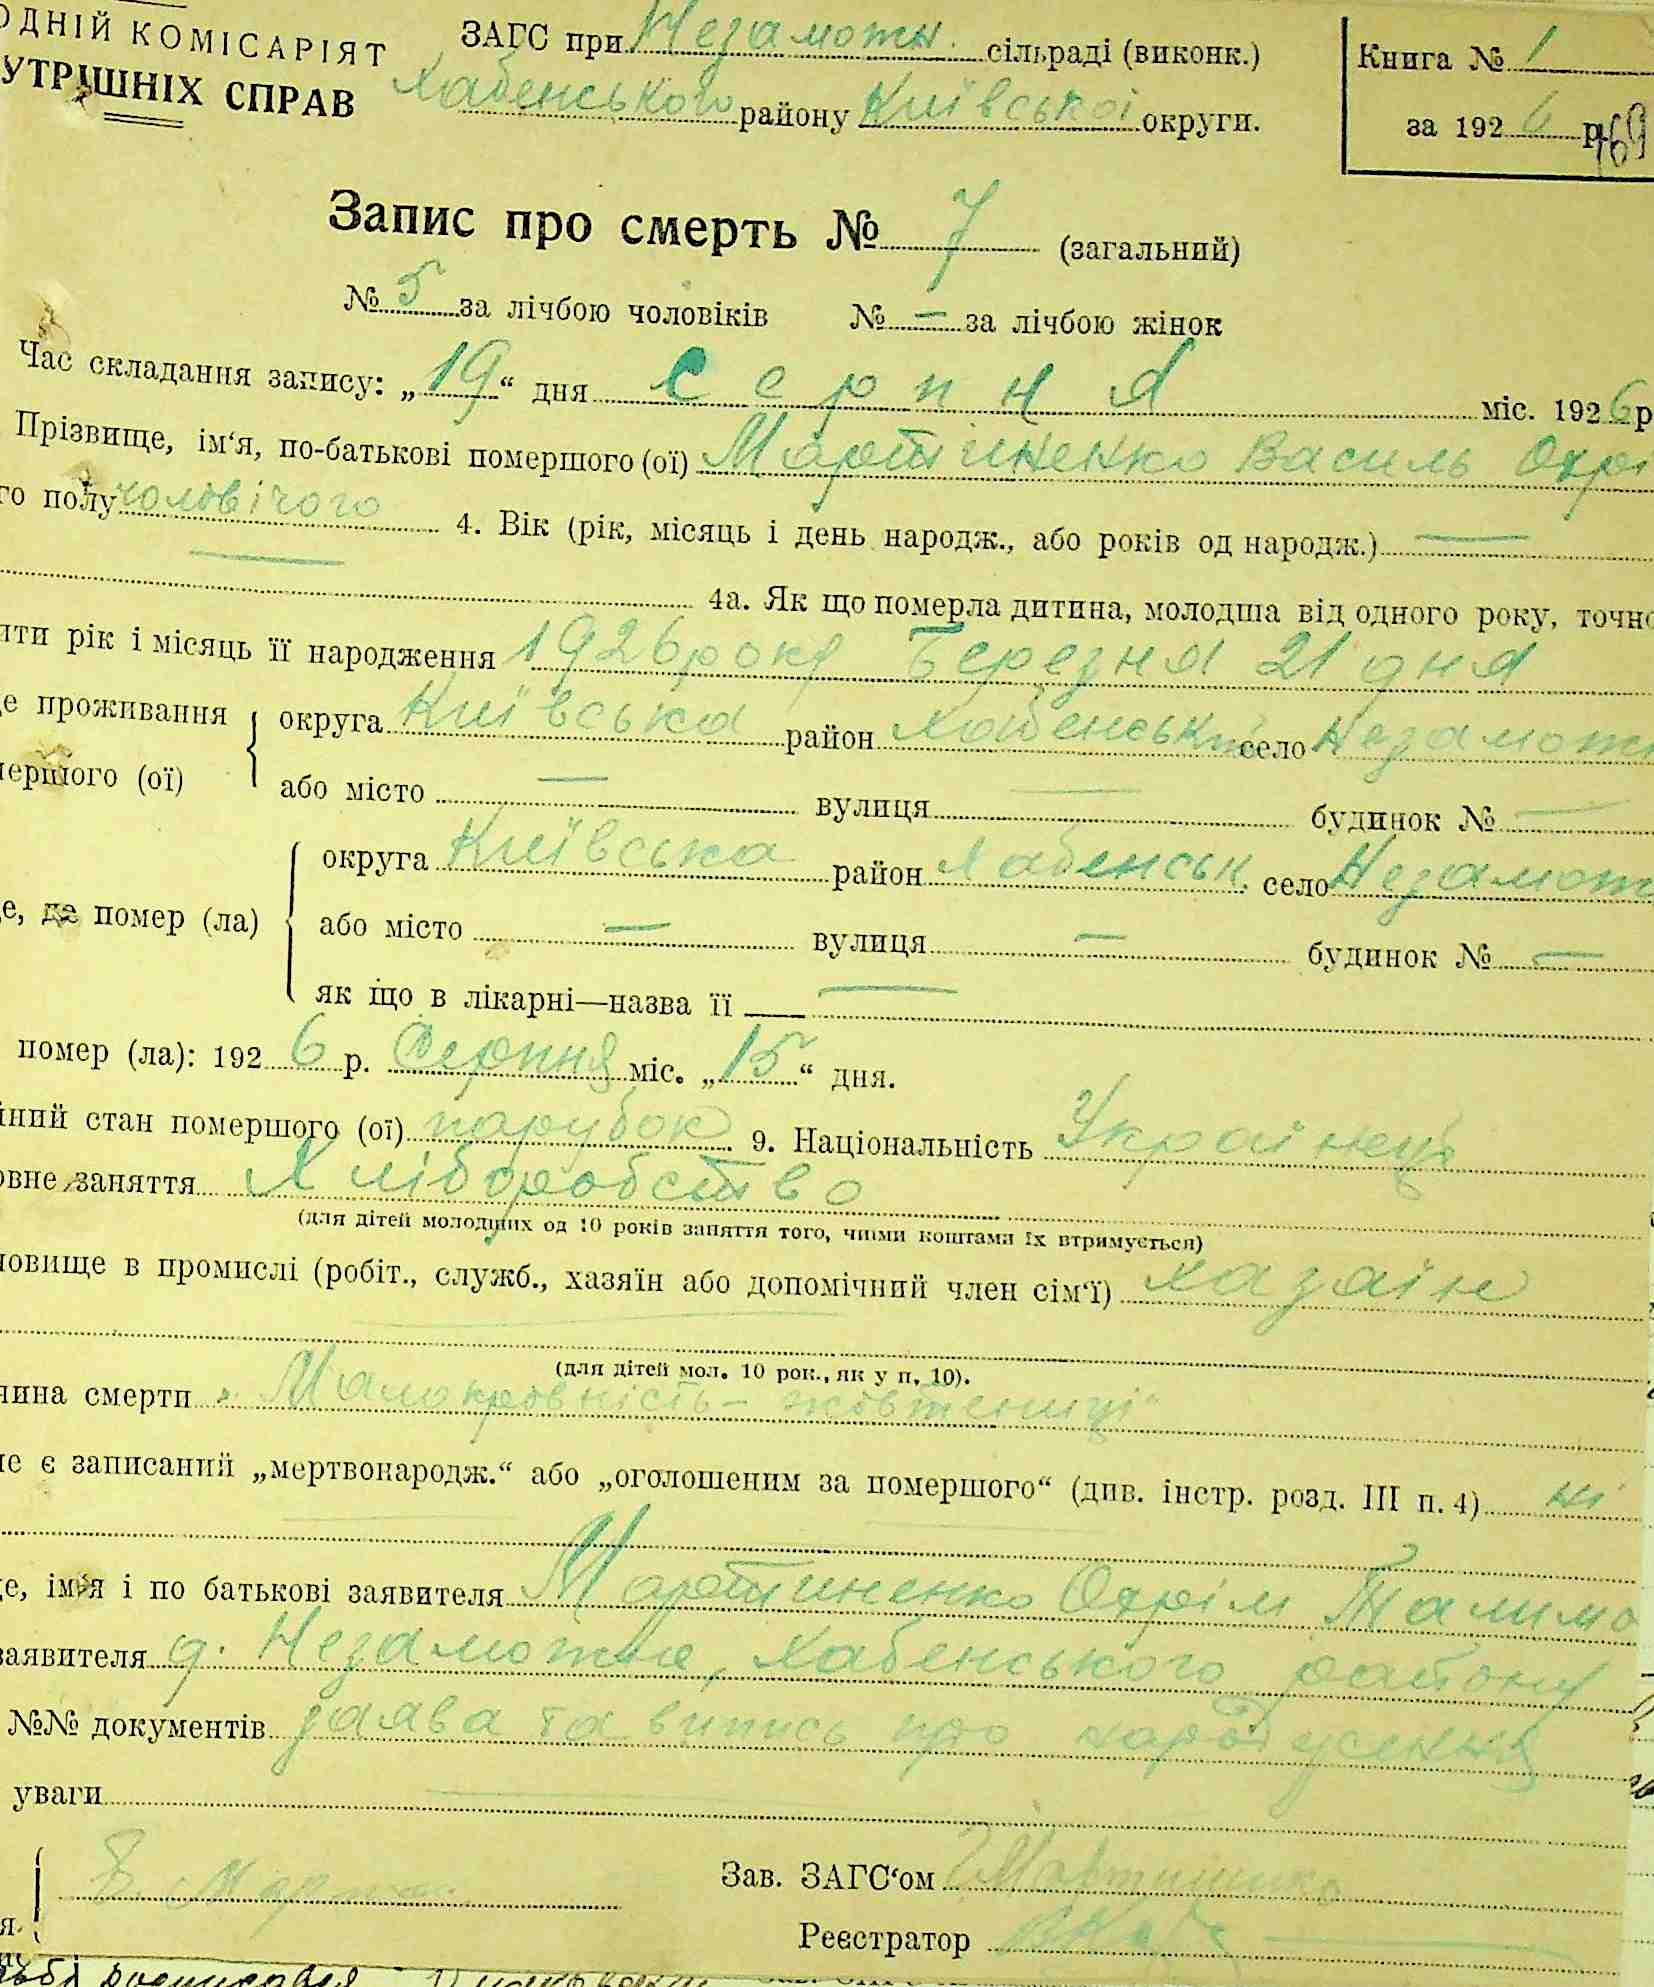 ОДНІЙ КОМІСАРІЯТ
УТРІШНІХ СПРАВ
ЗАГС при Незаможн. сільраді (виконк.)
Хабенського району Київської округи.
Книга № 1
за 1926 р.
169
Запис про смерть № 7 (загальний)
№ 5 за лічбою чоловіків № — за лічбою жінок
Час складання запису: „19“ дня Серпня міс. 1926 р
Прізвище, ім‘я, по-батькові помершого (ої) Мартиненко Василь Охрі
го полу чоловічого 4. Вік (рік, місяць і день народж., або років од народж.) —
4а. Як що померла дитина, молодша від одного року, точно
ити рік і місяць її народження 1926 року Березня 21 дня
це проживання округа Київська район Хабенський село Незаможн
мершого (ої) або місто — вулиця — будинок № —
округа Київська район Хабенськ. село Незамож
це, де помер (ла) або місто — вулиця — будинок № —
як що в лікарні—назва її —
помер (ла): 1926 р. Серпня міс. „15“ дня.
йний стан помершого (ої) парубок 9. Національність Українець
овне заняття Хліборобство
(для дітей молодших од 10 років заняття того, чиїми коштами їх втримується)
новище в промислі (робіт., служб., хазяїн або допомічний член сім‘ї) хазаін
(для дітей мол. 10 рок., як у п. 10).
чина смерти „Малокровність – жовтениці“
не є записаний „мертвонародж.“ або „оголошеним за помершого“ (див. інстр. розд. III п. 4) ні
це, ім‘я і по батькові заявителя Мартиненко Охрім Талимо
заявителя д. Незаможне, Хабенського району
№№ документів заява та випись про народження
уваги —
Зав. ЗАГС‘ом Мартиненко
Реєстратор